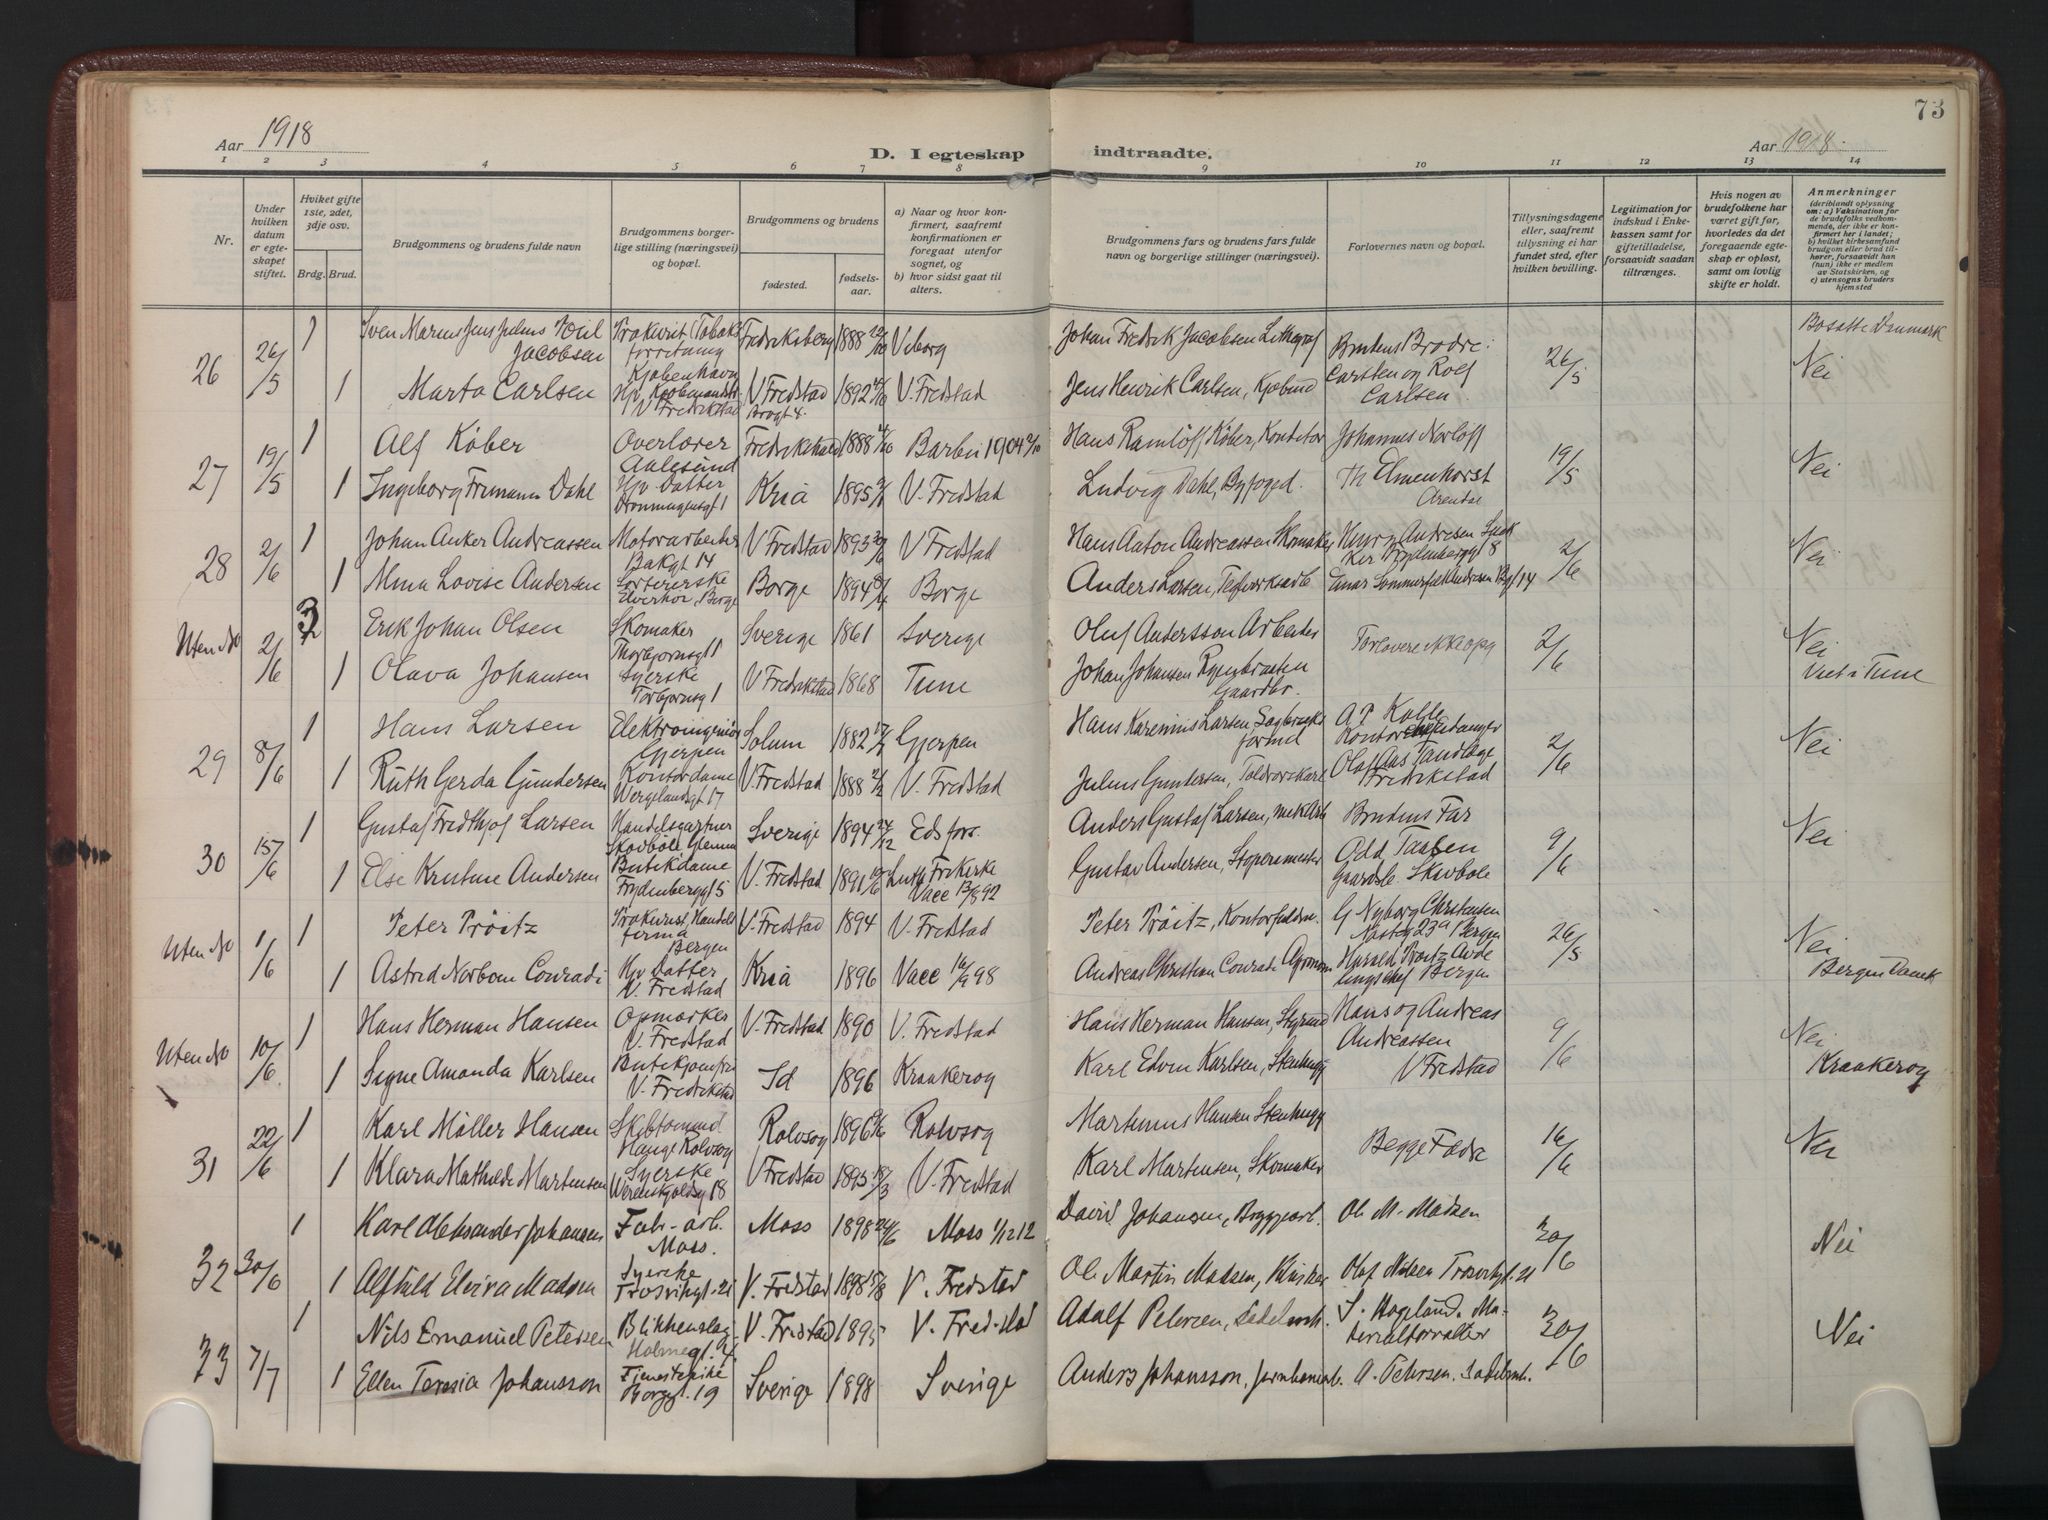 73
Aar 1918
D. I egteskap indtraadte.
Aar 1918.
1 2 3 4 5 6 7 8 9 10 11 12 13 14
Nr.
Under hvilken datum er egteskapet stiftet.
Hviket gifte 1ste, 2det, 3dje osv.
Brdg. Brud.
Brudgommens og brudens fulde navn
Brudgommens borgerlige stilling (næringsvei) og bopæl.
Brudgommens og brudens
fødested. fødselsaar.
a) Naar og hvor konfirmert, saafremt konfirmationen er foregaat utenfor sognet, og
b) hvor sidst gaat til alters.
Brudgommens fars og brudens fars fulde navn og borgerlige stillinger (næringsvei).
Forlovernes navn og bopæl.
Tillysningsdagene eller, saafremt tillysning ei har fundet sted, efter hvilken bevilling.
Legitimation for indskud i Enkekassen samt for giftetilladelse, forsaavidt saadan tiltrænges.
Hvis nogen av brudefolkene har været gift før, hvorledes da det foregaaende egteskap er opløst, samt om lovlig skifte er holdt.
Anmerkninger (deriblandt oplysning om: a) Vaksination for de brudefolks vedkommende, der ikke er konfirmert her i landet; b) hvilket kirkesamfund brudgom eller brud tilhører, forsaavidt han (hun) ikke er medlem av Statskirken, og c) utensogns bruders hjemsted
26 26/5 1 Sven Marius Jens Julius Jacobsen Prokurist Tobaksforretning Kjøbenhavn Fredriksberg 1888 Viborg Johan Fredrik Jacobsen Lithograf Brudens Brødre: Carsten og Rolf Carlsen 26/5 Bosatte Danmark Nei
1 Marta Carlsen V. Fredrikstad V Fredstad 1892 V. Fredstad Jens Henrik Carlsen, Kjøbmd
27 19/5 1 Alf Köber Overlærer Aalesund Fredrikshald 1888 Barbu 1904 Hans Ramlöff Köber, Konditor Johannes Norløff 19/5 Nei
1 Ingeborg Frimann Dahl Hjv Datter Dronningensgt 1 Kria 1895 V. Fredstad Ludvig Dahl, Byfoged. Th Elmenhorst Arendal
28 2/6 1 Johan Anker Andreassen Motorarbeider Bakgt 14 V Fredstad 1893 V Fredstad Hans Anton Andreassen Skomaker Henry Andresen 2/6 Nei
1 Mina Lovise Andersen Sortererske Elverhøi, Borge Borge 1894 Borge Anders Larsen, Teglverksarb
Uten No 2/6 3 Erik Johan Olsen Skomaker Thorbjørnsgt 1 Sverige 1861 Sverige Oluf Andersson Arbeider Forlovere ikke opg 2/6 Nei
1 Olava Johansen Syerske Torbjørnsg 1 V Fredrikstad 1868 Tune Johan Johansen Gaardbr. Viet i Tune
29 8/6 1 Hans Larsen Elektroingeniør Gjerpen Solum 1882 Gjerpen Hans Larsen Sagbruksformd A P Kolle 2/6 Nei
1 Ruth Gerda Gundersen Kontordame Wergelandsgt 17 V. Fredstad 1888 V. Fredstad Julius Gundersen, Olaf Aas Tandlæge Fredrikstad
30 15/6 1 Gustaf Fredthjof Larsen Handelsgartner Skovbøle Glemm Sverige 1894 24/12 Edsfors. Anders Gustaf Larsen, mek Arb Brudens Far 9/6 Nei
1 Else Kristine Andersen Butikdame Frydenberggt 5 V. Fredstad 1891 Luth Frikirke Vacc 13/8 92 Gustav Andersen, Støpermester Odd Taalsen Gaardbr. Skovbøle
Uten No 1/6 1 Peter Tröitz Prokurist, Handelsfirma Bergen V. Fredstad 1894 V. Fredstad Peter Tröitz, Kontorfuldm. G Nyborg Christensen Bergen 26/5 Nei
1 Astrid Norbom Conradi Hjv Datter V. Fredstad Kria 1896 Vacc 16/9 98 Andreas Christian Conradi Agronom Harald Tröitz Avdelingschef Bergen Bergens Domk
Uten No 10/6 1 Hans Herman Hansen Opmerker V. Fredstad V. Fredstad 1890 V. Fredstad Hans Herman Hansen, Styrmd Hans og Andreas Andreassen V Fredstad 9/6 Nei
1 Signe Amanda Karlsen V. Fredrikstad Id 1896 Kraakerøy Karl Edvin Karlsen, Stenhugg Kraakerøy
31 22/6 1 Karl Möller Hansen Hauge Rolvsøy Rolvsøy 1896 Rolvsøy Martinius Hansen Stenhugg Begge Fædre 16/6 Nei
1 Klara Mathilde Martinsen Syerske Werenskjoldsg 18 V Fredstad 1895 18/3 V. Fredstad Karl Martinsen, Skomaker
32 30/6 1 Karl Aleksander Johansen Fabr-arb. Moss. Moss 1898 Moss 1/12 12 David Johansen, Bryggearb. Ole M. Madsen 30/6 Nei
1 Alfhild Elvira Madsen Syerske Trosvikgt. 21 V. Fredstad 1898 V. Fredstad Ole Martin Madsen, Klinker Olaf Nilsen Trosvikgt. 21
33 7/7 1 Nils Emanuel Petersen Blikkenslag. Holmegt. 4. V. Fredstad 1895 V. Fredstad Adolf Petersen, Sadelmk. S. Hogland. Materialforvalter 30/6 Nei
1 Ellen Teresia Johansson Tjenestepike Borggt. 19 Sverige 1898 Sverige Anders Johansson, A. Petersen. Sadelmk.